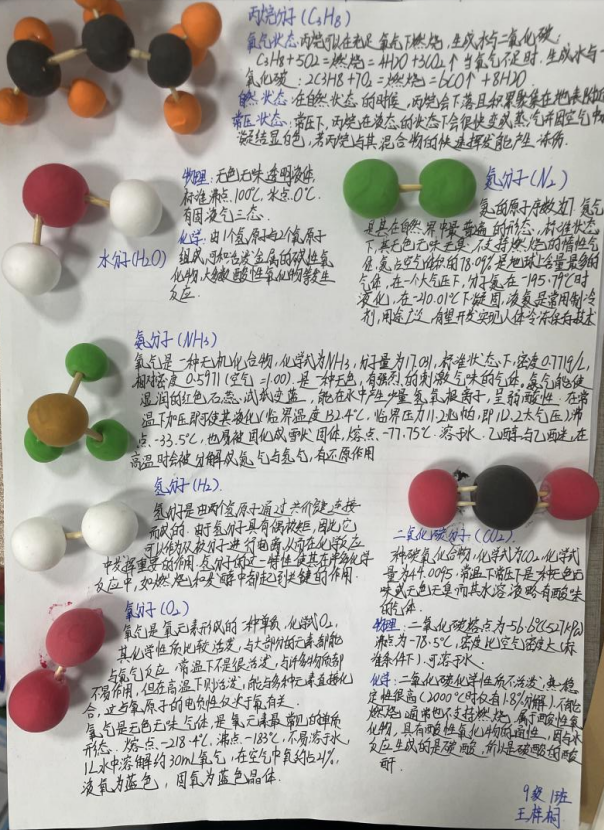 丙烷分子(C3H8)
氧气状态:丙烷可以在充足氧气下燃烧,生成水与二氧化碳:
C3H8+5O2=燃烧=4H2O+3CO2↑当氧气不足时,生成水与一
氧化碳:2C3H8+7O2=燃烧=6CO↑+8H2O.
自然状态:在自然状态的时候,丙烷会下落且积累聚集在地表附近
常压状态:常压下,丙烷在液态的状态下会很快变成蒸气并因空气中
凝结显白色,若丙烷与其混合物的快速挥发能产生冻伤.
物理:无色无味透明液体,
标准沸点100℃,冰点0℃.
有固液气三态.
化学:由1个氧原子与2个氢原子
组成,可和活泼金属的碱性氧
化物,大多数酸性氧化物等发生
反应.
水分子(H2O)
氮分子(N2)
氮的原子序数为7,氮气
是其在自然界中最普遍的形态,标准状态
下,其无色无味无臭,不支持燃烧的惰性气
体,氮占空气体积的78.09%是地球上含量最多的
气体,在一个大气压下,分子氮在-195.79℃时
液化,在-210.01℃下凝固,液氮是常用制冷
剂,用途广泛,有望开发实现人体冷冻保存技术
氨分子(NH3)
氨气是一种无机化合物,化学式为NH3,分子量为17.031,标准状态下,密度0.771g/L,
相对密度0.5971(空气=1.00).是一种无色,有强烈的刺激气味的气体.氨气能使
湿润的红色石蕊试纸变蓝,能在水中产生少量氢氧根离子,呈弱酸性.在常
温下加压即可使其液化(临界温度132.4℃,临界压力11.2兆帕,即112.2大气压)沸
点-33.5℃,也易被固化成雪状固体,熔点-77.75℃.溶于水、乙醇与乙酸迷,在
高温时会被分解成氮气与氢气,有还原作用
氢分子(H2).
氢分子是由两个氢原子通过共价键连接
而成的.由于氢分子具有偶极矩,因此它
可以作为极分子进行电离,从而在化学反应
中发挥重要的作用.氢分子的这一特性使其在许多化学
反应中,如燃烧和发酵中都起到关键的作用.
氧分子(O2)
氧气是氧元素形成的一种单质,化学式O2,
其化学性质比较活泼,与大部分的元素都能
与氧气反应.常温下不是很活泼,与许多物质都
不易作用,但在高温下则活泼,能与多种元素直接化
合,这与氧原子的电负性仅次于氟有关.
氧气是无色无味气体,是氧元素最常见的单质
形态.熔点-218.4℃,沸点-183℃,不易溶于水,
1L水中溶解约30mL氧气,在空气中氧约占21%,
液氧为蓝色,固氧为蓝色晶体.
二氧化碳分子(CO2).
一种碳氧化合物,化学式为CO2,化学式
量为44.0095,常温下常压下是一种无色无
味或无色无臭而其水溶液略有酸味
的气体.
物理:二氧化碳熔点为-56.6℃(527kPa)
沸点为-78.5℃,密度比空气密度大(标
准条件下),可溶于水.
化学:二氧化碳化学性质不活泼,热稳
定性很高(2000℃时仅有1.8%分解)不能
燃烧,通常也不支持燃烧,属于酸性氧
化物,具有酸性氧化物的通性,因与水
反应生成的是碳酸,所以是碳酸的酸
酐.
9级1班
王梓桐